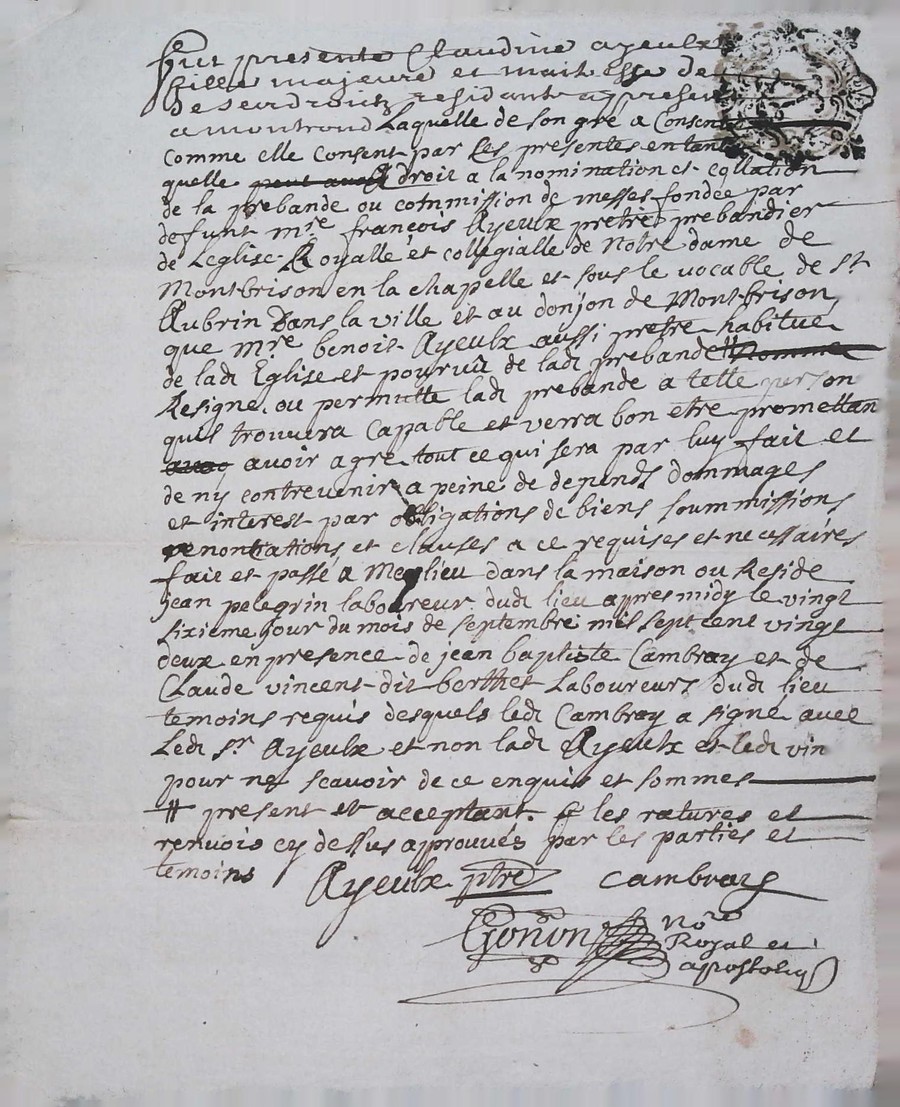 fut presente Claudine ayeulx
fille majeure et maitresse de
ses droitz residante a present
a montrond Laquelle de son gré a Consenti
comme elle consent par les presentes en tant
quelle peut avoir droit a la nomination et collation
de la prebande ou commission de messes fondée par
defunt mre françois Ayeulx pretre prebandier
de Leglise Royalle et collegialle de Notre dame de
Montbrison en la chapelle et sous le vocable de st
Aubrin Dans la ville et au donjon de Montbrison
que mre benoit Ayeulx aussi pretre habitué
de ladt Eglise et pourvû de ladt prebande # nommer
Resigne ou permutte ladt prebande a telle person
quil trouvera Capable et verra bon etre promettan
avoir agre tout ce qui sera par luy fait et
de ny contrevenir a peine de depends dommages
et interest par obligations de biens soummissions
renontiations et clauses a ce requises et necessaires
fait et passé a Meylieu dans la maison ou Reside
jean pelegrin laboureur dudt lieu appres midy le vingt
sixieme jour du mois de septembre mil sept cent vingt
deux en presence de jean baptiste Cambray et de
Claude vincent dit berthet Laboureurs dudt lieu
temoins requis desquels ledt Cambray a signé avec
Ledt sr Ayeulx et non ladt Ayeulx et ledt vin
pour ne scavoir de ce enquis et sommes
# present et acceptant. les ratures et
renvois cy dessus approuvés par les parties et
temoins
Ayeulx ptre cambray
Gonon Nore
Royal et
apostoliq